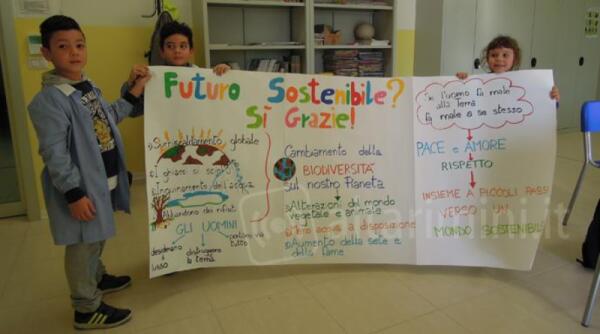 Futuro Sostenibile?
Sì Grazie!
Surriscaldamento globale
I ghiacci si sciolgono
Inquinamento dell'acqua
Abbandono dei rifiuti
GLI UOMINI
desiderano
lusso
distruggono
la terra
portano via
tutto
Cambiamento della
BIODIVERSITÀ
sul nostro Pianeta
Alterazioni del mondo
vegetale e animale
Meno acqua a disposizione
Aumento della sete e
della fame
Se l'uomo fa male
alla terra
fa male a se stesso
PACE e AMORE
RISPETTO
INSIEME A PICCOLI PASSI
VERSO UN
MONDO SOSTENIBILE